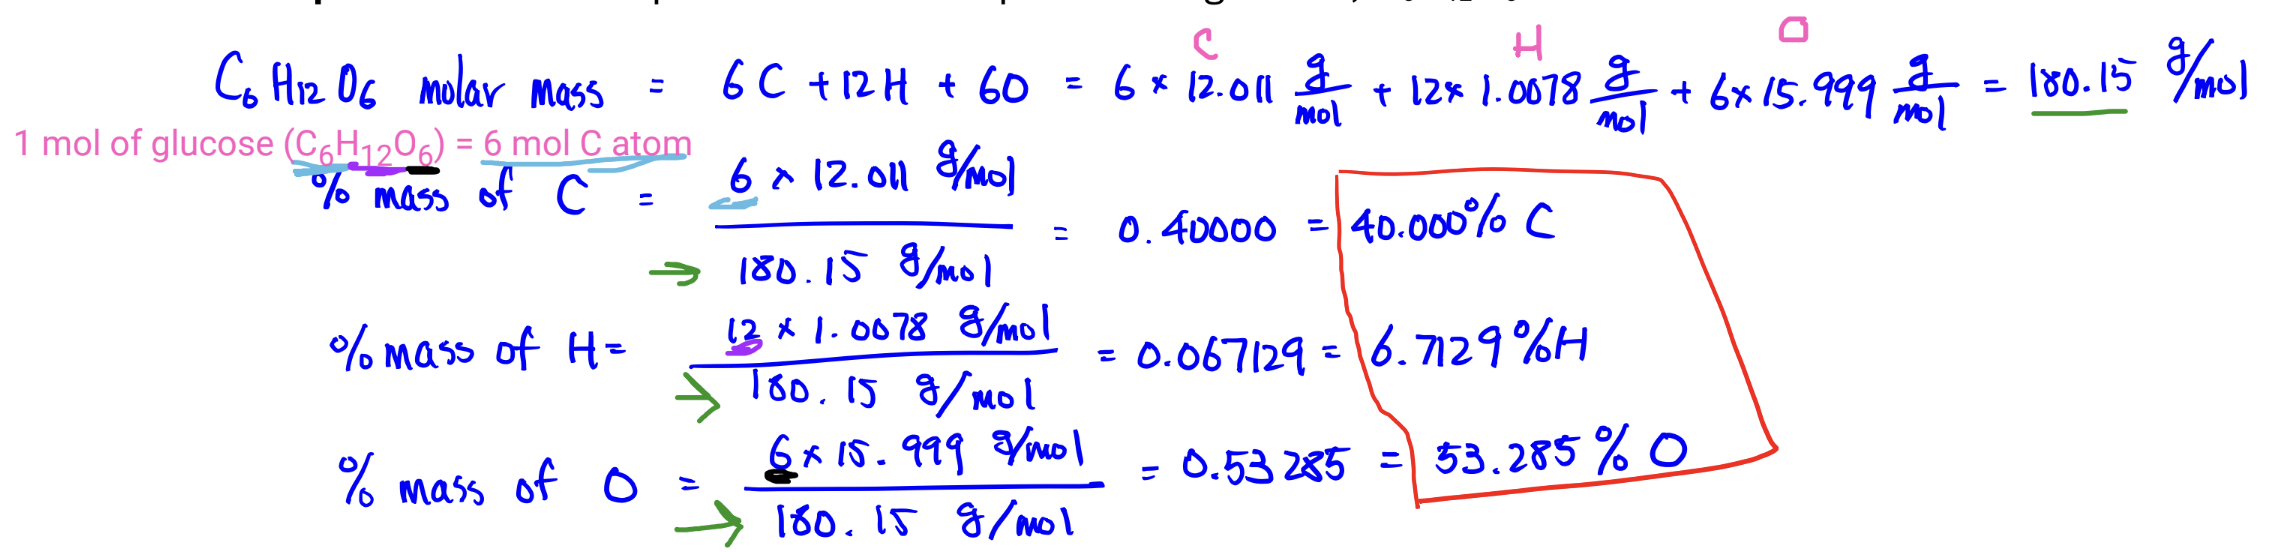 C H O
C6 H12 O6 molar mass = 6 C + 12 H + 6O = 6 × 12.011 g/mol + 12 × 1.0078 g/mol + 6 × 15.999 g/mol = 180.15 g/mol
1 mol of glucose (C6H12O6) = 6 mol C atom
% mass of C = 6 × 12.011 g/mol / 180.15 g/mol = 0.40000 = 40.000% C
% mass of H = 12 × 1.0078 g/mol / 180.15 g/mol = 0.067129 = 6.7129 % H
% mass of O = 6 × 15.999 g/mol / 180.15 g/mol = 0.53285 = 53.285 % O